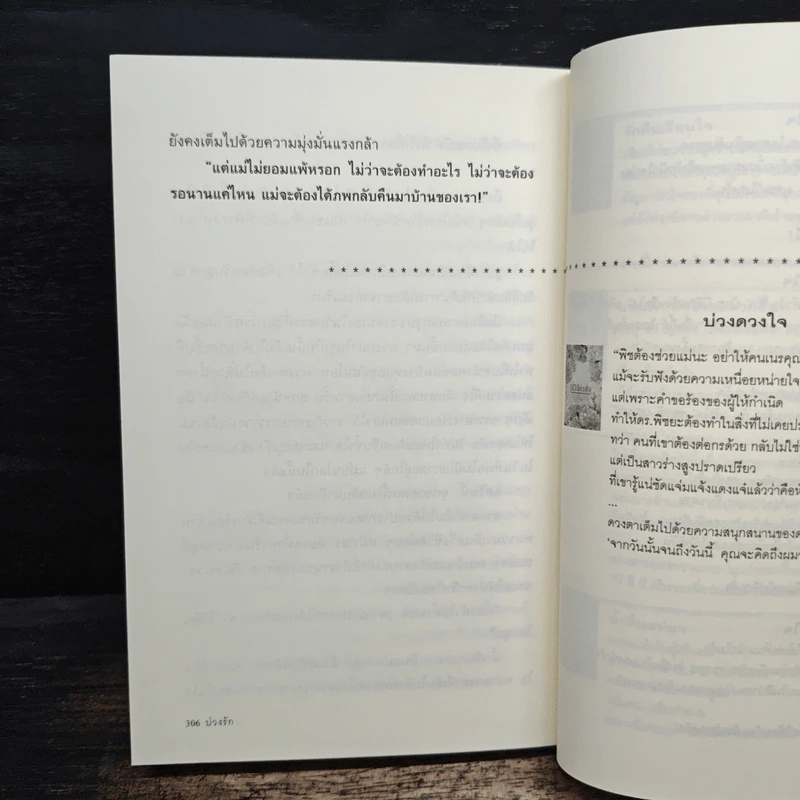 ยังคงเต็มไปด้วยความมุ่งมั่นแรงกล้า
“แต่แม่ไม่ยอมแพ้หรอก ไม่ว่าจะต้องทำอะไร ไม่ว่าจะต้อง
รอนานแค่ไหน แม่จะต้องได้ภพกลับคืนมาบ้านของเรา!”
306 บ่วงรัก
บ่วงดวงใจ
“พิชต้องช่วยแม่นะ อย่าให้คนเนรคุณ
แม้จะรับฟังด้วยความเหนื่อยหน่ายใจ
แต่เพราะคำขอร้องของผู้ให้กำเนิด
ทำให้ดร.พิชยะต้องทำในสิ่งที่ไม่เคย
ทว่า คนที่เขาต้องต่อกรด้วย กลับไม่ใช่
แต่เป็นสาวร่างสูงปราดเปรียว
ที่เขารู้แน่ชัดแจ่มแจ้งแดงแจ๋แล้วว่าคือ
...
ดวงตาเต็มไปด้วยความสนุกสนานของ
‘จากวันนั้นจนถึงวันนี้ คุณจะคิดถึงผม